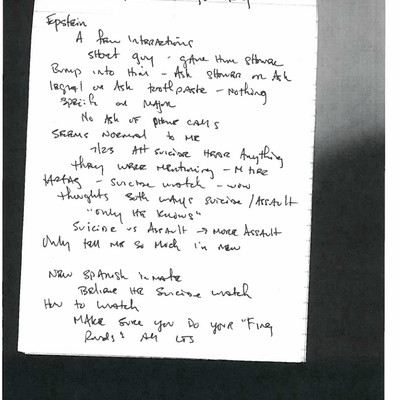 Epstein
A few Interactions
Short guy - gave him shower
Bump into Him - Ask shower on Ask
legal on Ask toothpaste - nothing
specific or major
No Ask of phone calls
Seems normal to me
7/23 Att suicide Hear Anything
they were mentioning -
- Suicide watch - now
thoughts both ways suicide/Assault
"only He knows"
Suicide vs Assault → more Assault
Only tell me so much in new
New Spanish inmate
Believe He Suicide watch
How to watch
Make sure you do your "Five
All LTS